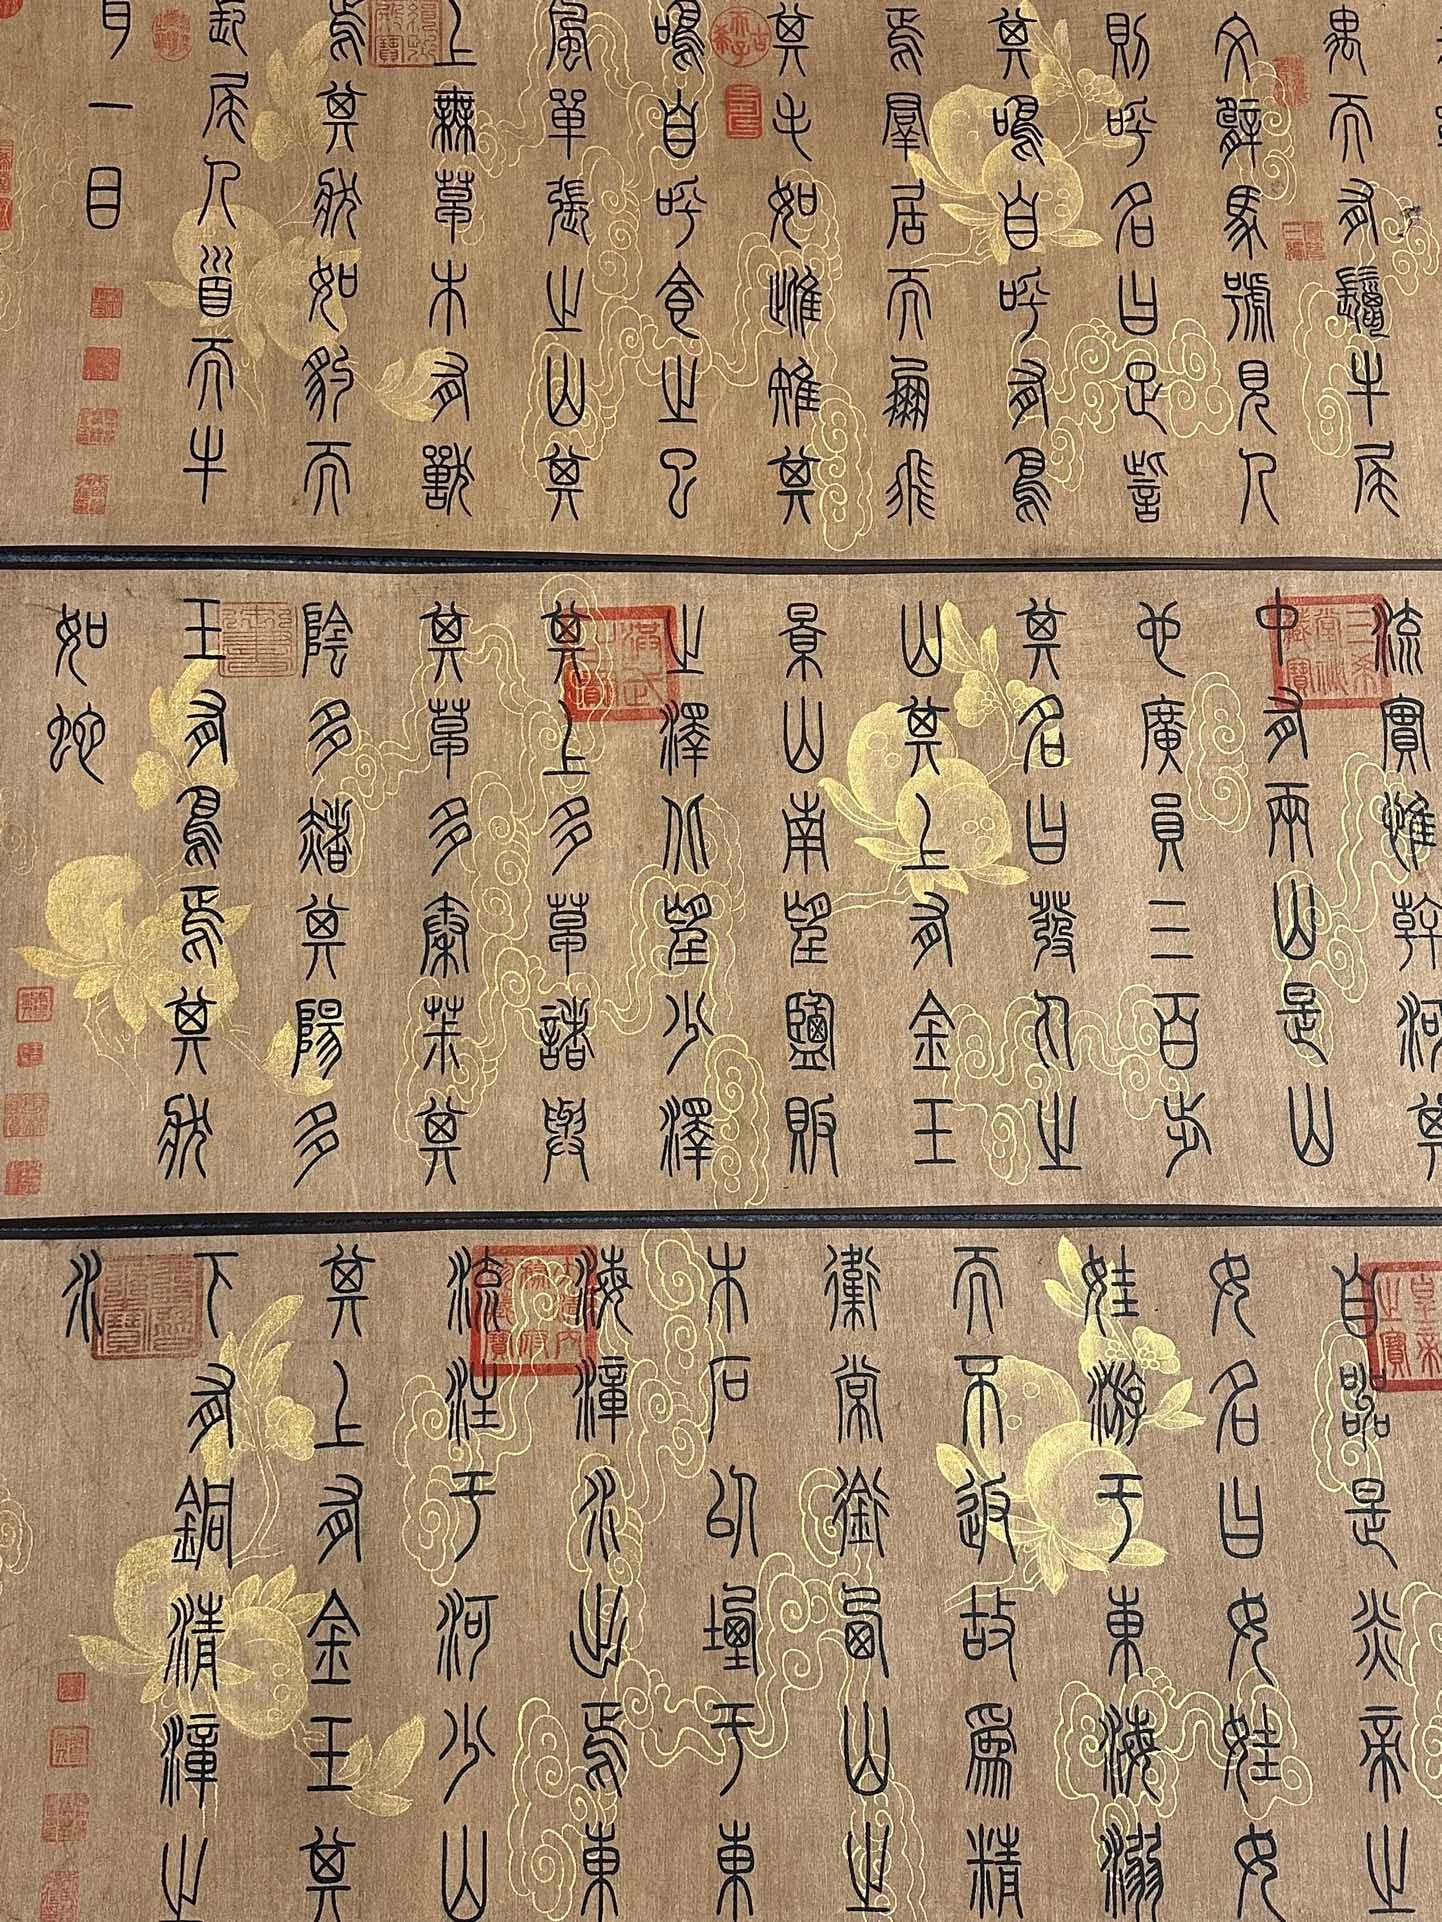 禺而有鬣牛尾
文臂馬號見人
則呼名曰足訾
其鳴自呼有鳥
焉羣居而朋飛
其毛如雌雉其
鳴自呼食之已
風單張之山其
上無草木有獸
焉其狀如豹而
長尾人首而牛
耳一目
流實惟幹河其
中有兩山是山
也廣員三百步
其名曰發丸之
山其上有金玉
景山南望鹽販
之澤北望少澤
其上多草藷藇
其草多秦茮其
陰多赭其陽多
玉有鳥焉其狀
如蛇
自詨是炎帝之
女名曰女娃女
娃游于東海溺
而不返故爲精
衛常銜西山之
木石以堙于東
海漳水出焉東
流注于河少山
其上有金玉其
下有銅清漳之
水